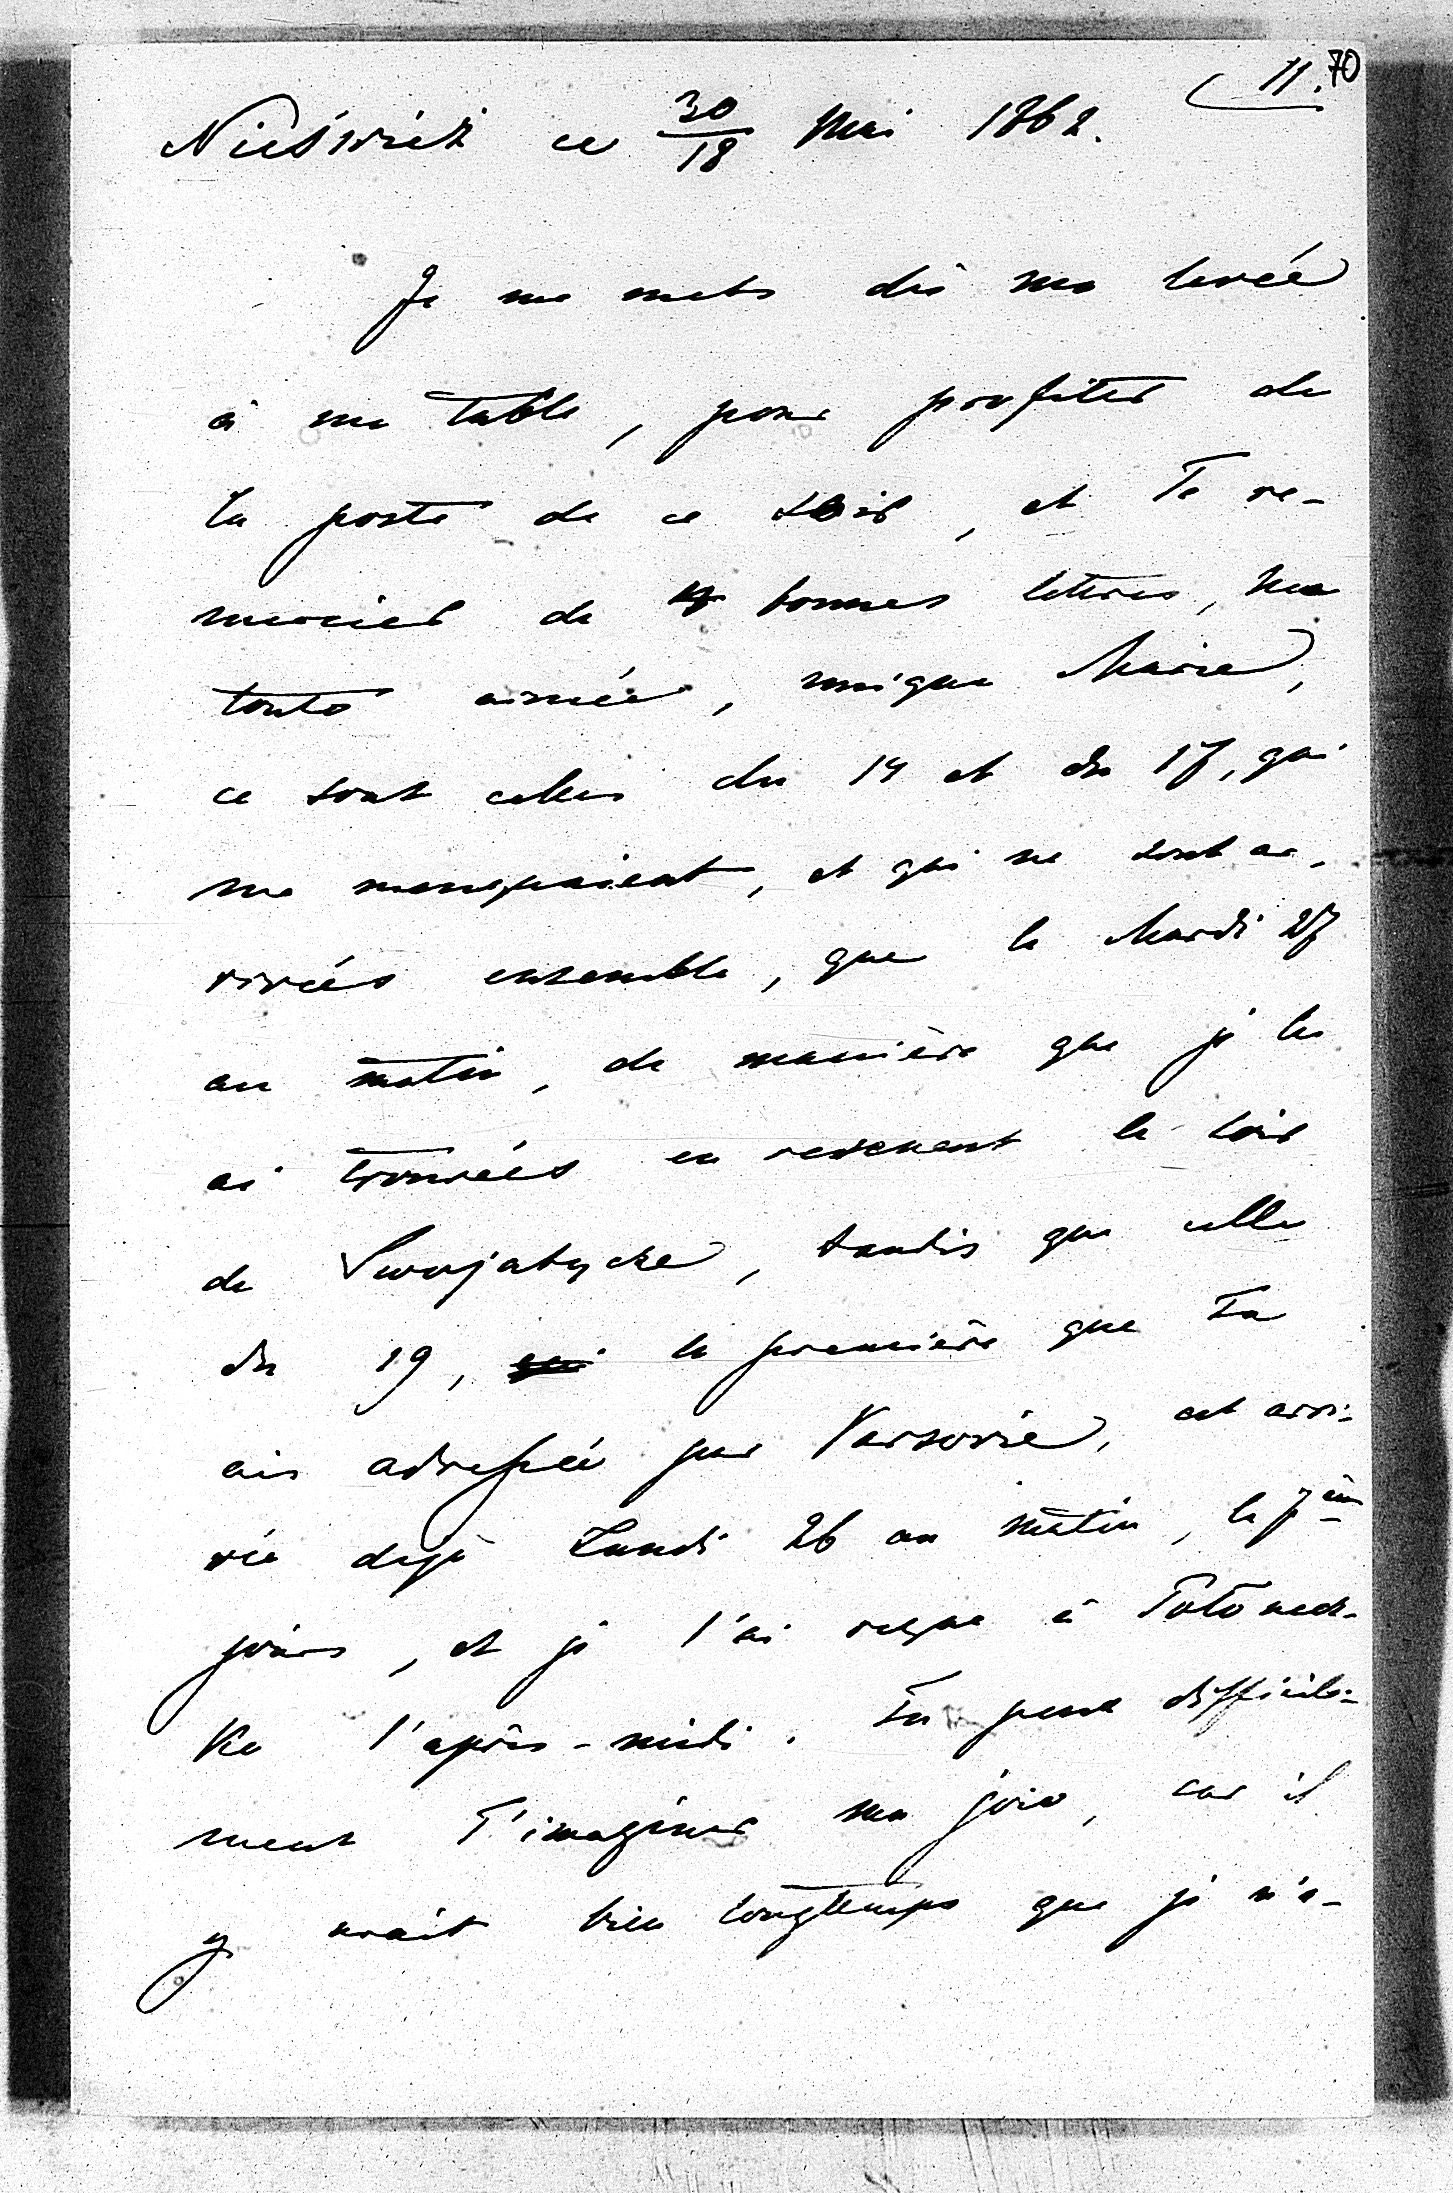 11. 70
Nieświéź ce 30/18 Mai 1862.
Je me mets dès ma levée
à ma table, pour profiter de
la poste de ce soir, et Te re-
mercier de tes bonnes lettres, ma
toute aimée, unique Marie,
ce sont celles du 14 et du 17, qui
me manquaient, et qui ne sont ar-
rivées ensemble, que le Mardi 27
au matin, de manière que je les
ai trouvées en revenant le soir
de Swojatycze, tandis que celle
du 19, la première que Tu
ais adressée par Varsovie, est arri-
vée dejà Lundi 26 au matin, le 7ème
jours, et je l'ai reçue à Totonech-
ka l'après-midi. Tu peux difficile-
ment T'imaginer ma joie, car il
y avait bien longtemps que je n'a-